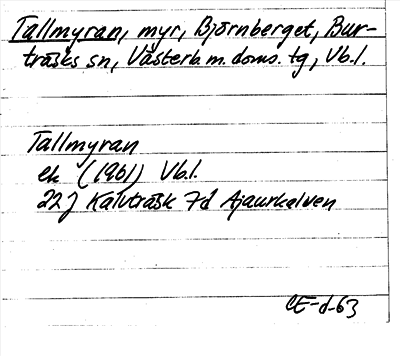 Tallmyran, myr, Björnberget, Bur-
träsks sn, Västerb. m. doms. tg, Vb.l.
Tallmyran
ek (1961) Vb.l.
22 J Kalvträsk 7d Ajaurkalven
CE-d-63